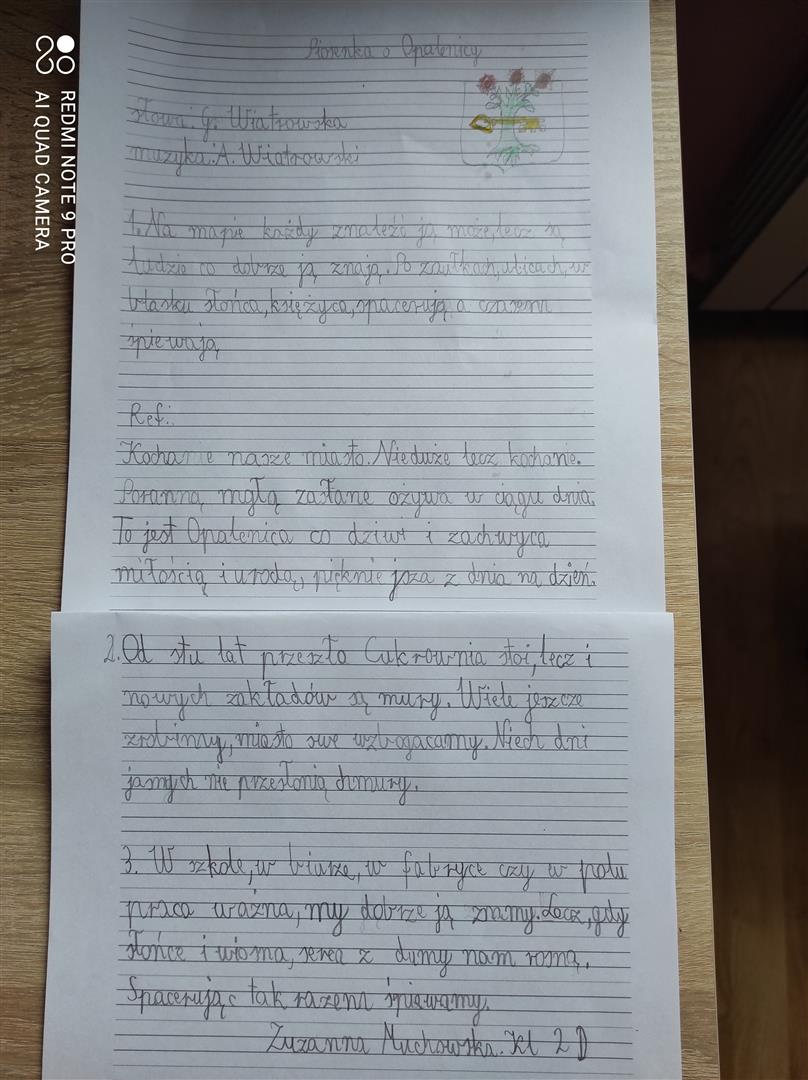 Piosenka o Opalenicy
słowa: G. Wiatrowska
muzyka: A. Wiatrowski
1. Na mapie każdy znaleźć ją może, lecz są
ludzie co dobrze ją znają. Po zaułkach, ulicach, w
blasku słońca, księżyca, spacerują a czasem
śpiewają
Ref.:
Kochanie nasze miasto. Nieduże lecz kochanie.
Poranną mgłą zasłane ożywa w ciągu dnia.
To jest Opalenica co dziwi i zachwyca
miłością i urodą, pięknie z dnia na dzień.
2. Od stu lat przeszło Cukrownia stoi, lecz i
nowych zakładów są mury. Wiele jeszcze
zrobimy, miasto swe wzbogacamy. Niech dni
jasnych nie przesłonią chmury.
3. W szkole, w biurze, w fabryce czy w polu
praca ważna, my dobrze ją znamy. Lecz, gdy
słońce i wiosna, serca z dumy nam rosną,
Spacerując tak razem śpiewamy.
Zuzanna Muchowska. Kl 2 D
REDMI NOTE 9 PRO
AI QUAD CAMERA